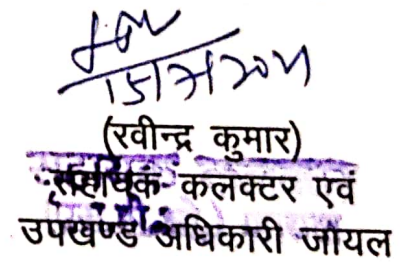 (रवीन्द्र कुमार)
सहायक कलक्टर एवं
उपखण्ड अधिकारी जायल